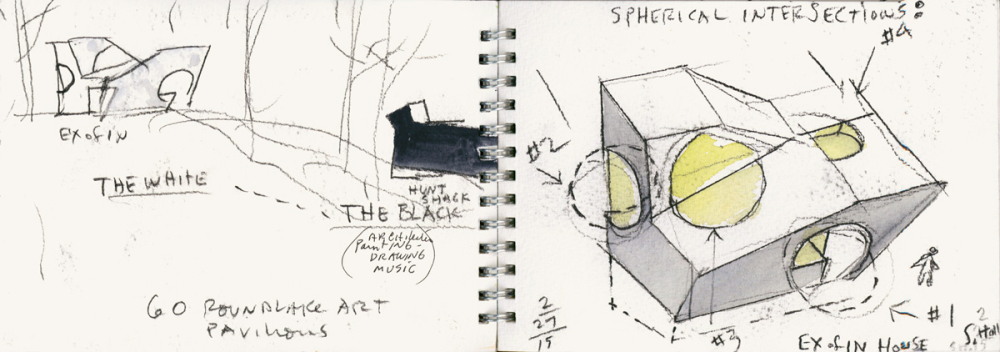 EX of IN
THE WHITE
HUNT
SHACK
THE BLACK
PAINTING-
DRAWING
MUSIC
60 ROUNDLAKE ART
PAVILIONS
SPHERICAL INTERSECTIONS:
#4
#2
2
27
15
#3
#1
EX of IN HOUSE
2
S. Holl